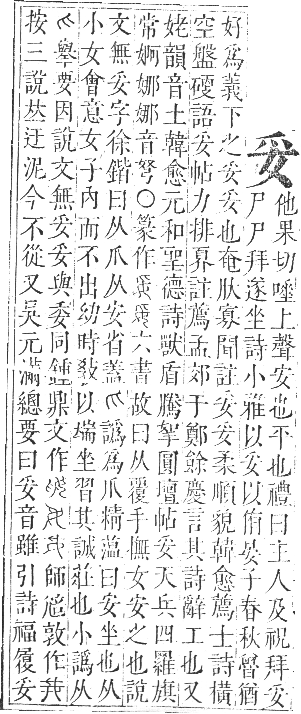 妥
他果切唾上聲安也平也禮曰主人及祝拜妥
尸尸拜遂坐詩小雅以妥以侑晏子春秋
好爲義下之妥妥也奄欣寡聞註妥妥柔順貌韓愈薦士詩橫
空盤硬語妥帖力排奡註薦孟郊于鄭餘慶言其詩辭工也又
姥韻音土韓愈元和聖德詩獸盾騰拏圜壇帖妥天兵四羅旗
常婀娜娜音弩○篆作六書故曰从覆手撫女安之也說
文無妥字徐鍇曰从爪从安省蓋譌爲爪精蘊曰安坐也从
小女會意女子內而不出幼時敎以端坐習其誠莊也小譌从
爫舉要因說文無妥妥與委同鍾鼎文作師敦作
按三說𠀤迂泥今不從又吳元滿總要曰妥音雖引詩福履妥